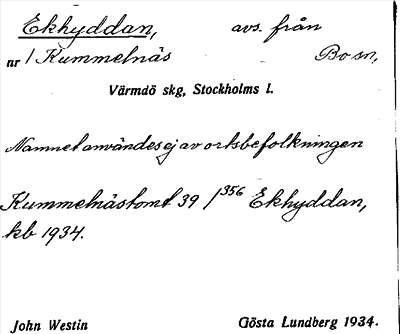 Ekhyddan, avs. från
nr 1 Kummelnäs Bo sn,
Värmdö skg, Stockholms l.
Namnet användes ej av ortsbefolkningen
Kummelnästomt 39 /356 Ekhyddan,
kb 1934.
John Westin Gösta Lundberg 1934.